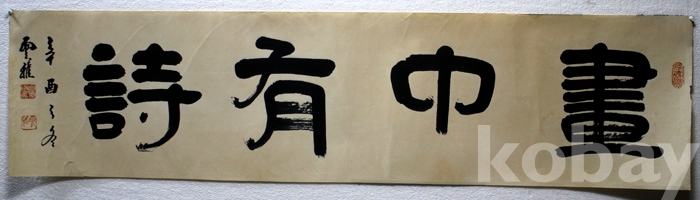 畫中有詩
辛酉之冬
kobay